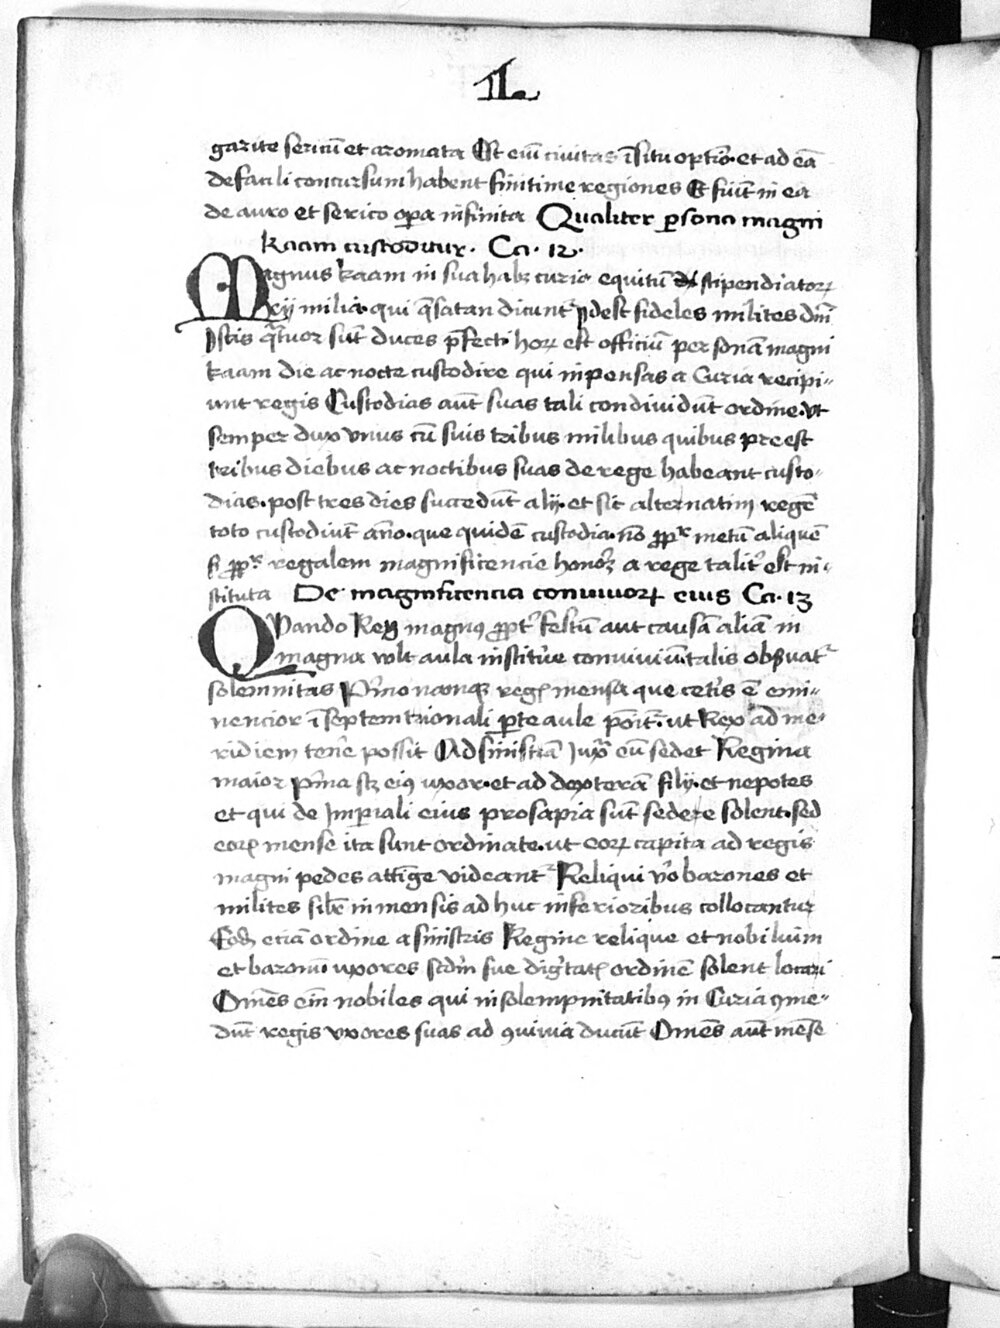 IL
garite sericũ et aromata Est eniȝ ciuitas ĩ situ optĩo. et ad eã
de facili concursum habent finitime regiones Et fiũt in ea
de auro et serico oꝑa infinita Qualiter ꝑsona magni
kaam custoditur. Ca. 12.
Magnus kaam in sua habꝫ curia equitũ stipendiatoꝝ
xij milia. qui q̃satan dicunt᷑ idest fideles milites dñi
Istis q̃tuor sũt duces p̃fecti hoꝝ est officiũ personã magni
kaam die ac nocte custodire qui inpensas a Curia recipi-
unt regis Custodias aũt suas tali condiuidũt ordine. vt
semper dux vnius cũ suis tribus milibus quibus preest
tribus diebus ac noctibus suas de rege habeant custo-
dias. post tres dies succedũt alij. et sic alternatim regẽ
toto custodiũt año. que quidẽ custodia. nõ ꝓpt᷑ metũ aliquẽ
ꝓpt᷑ regalem magnificencie honoꝝ a rege talit᷑ est in-
stituta De magnificencia conuiuioꝝ eius Ca. 13
Quando Rex magnꝰ ꝓpt᷑ festũ aut causã aliã in
magna vult aula institue᷑ conuiuiũ. talis obẞuat᷑
solemnitas P̃mo namqꝫ regꝭ mensa que cet̃is ẽ emi-
nencior ĩ septemtrionali ꝑte aule põit᷑. ut Rex ad me-
ridiem tene᷑ possit Ad sinistrã Iuxͣ eũ sedet Regina
maior p̃ma sꝫ eiꝰ uxor. et ad dexterã filij. et nepotes
et qui de Imꝑiali eius prosapia sũt sedere solent. sed
eoꝝ mense ita sunt ordinate. ut eoꝝ capita ad regis
magni pedes attĩge᷑ videant᷑ Reliqui v̾o barones et
milites sibi in mensis ad huc inferioribus collocantur
Eodẽ eciã ordine a sinistris Regine relique et nobilium
et baronũ uxores scdm̃ sue dig̃tatꝭ ordinẽ solent locari
Om̃es eĩm nobiles qui in solempnitatibꝰ in Curia ꝯme-
dũt regis vxores suas ad ꝯuiuia ducũt Om̃es aũt mẽse